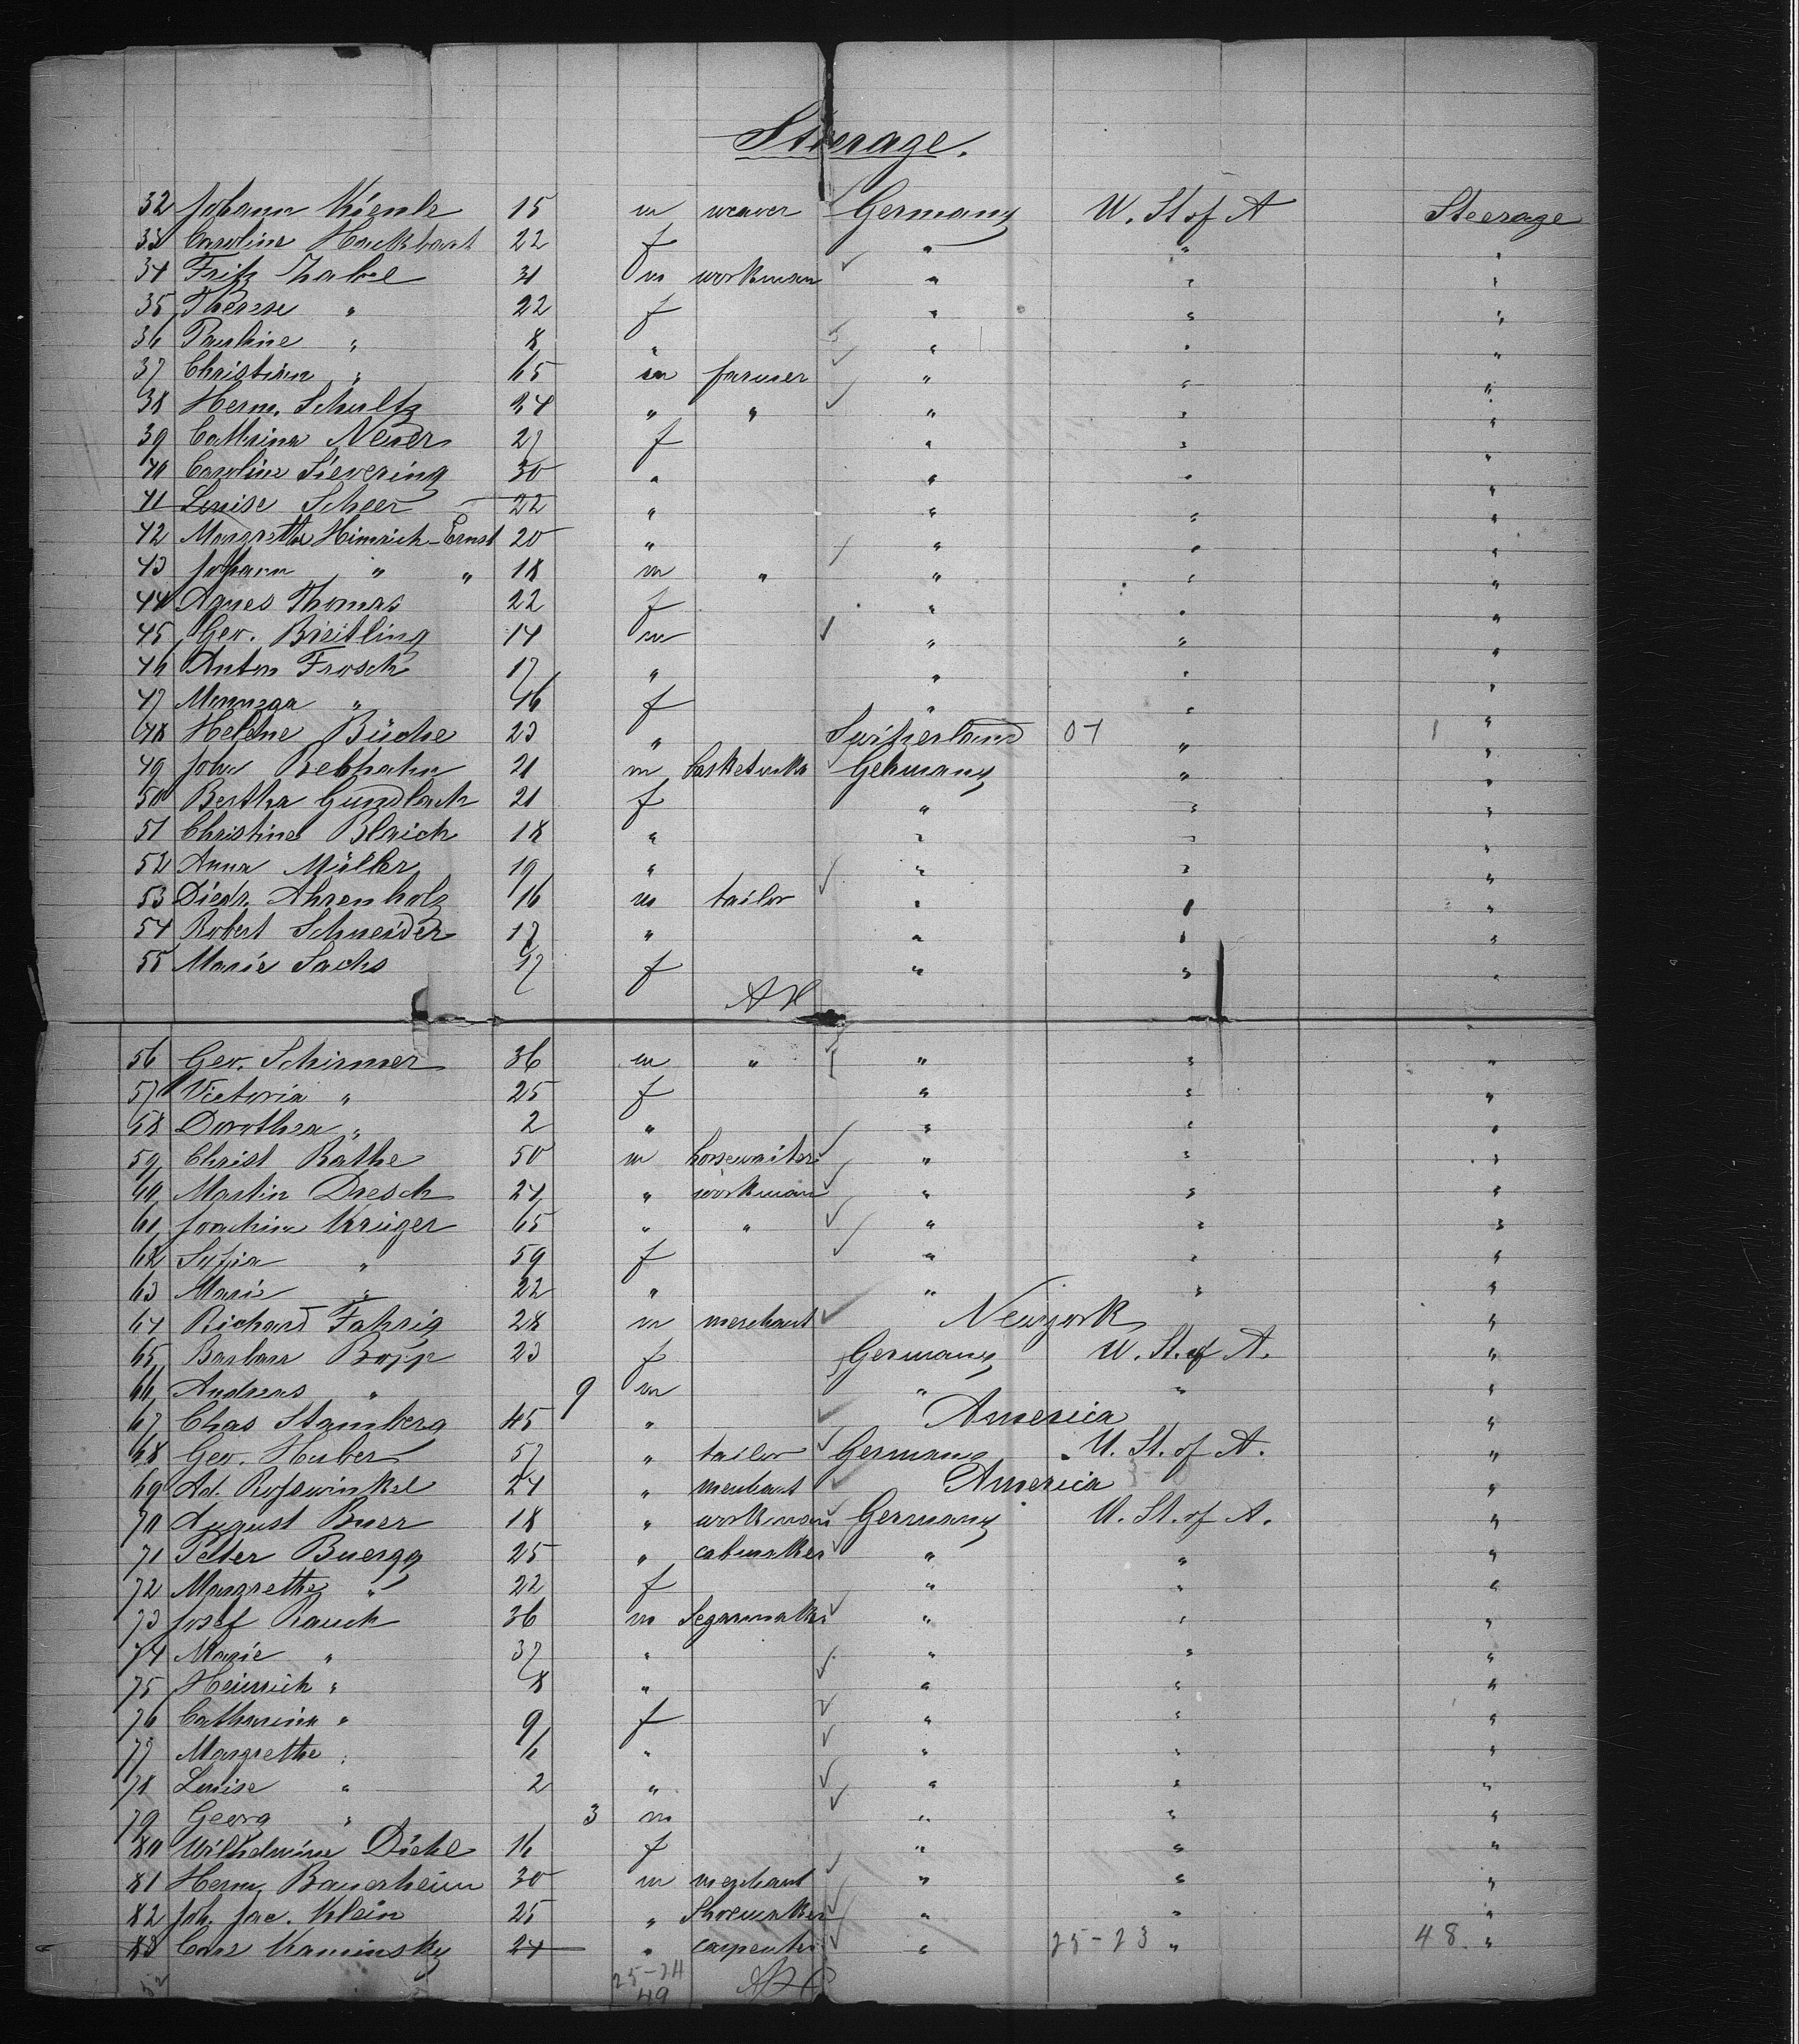 Steerage.
32 Johann Kienle 15 m weaver Germany U. St of A Steerage
33 Caroline Hackbart 22 f " " "
34 Fritz Zabel 31 m workman " " "
35 Therese " 22 f " " "
36 Pauline " 8 " " " "
37 Christian " 65 m farmer " " "
38 Herm. Schultz 24 " " " " "
39 Cathrina Neuer 27 f " " "
40 Caroline Sievering 30 " " " "
41 Luise Scheer 22 " " " "
42 Margrethe Himrich-Ernst 20 " " " "
43 Johann " " 18 m " " " "
44 Agnes Thomas 22 f " " "
45 Geo. Breitling 14 m " " "
46 Anton Frosch 17 " " " "
47 " 46 f " " "
48 Helene Büche 23 " Switzerland 01 " 1 "
49 John Rebhahn 21 m Germany " "
50 Bertha Gundlach 21 f " " "
51 Christine Blaich 18 " " " "
52 Anna Müller 19 " " " "
53 Diedr. Ahrenholz 16 m tailor " " "
54 Robert Schneider 17 " " " "
55 Marie Sachs f " " "
56 Geo. Schirmer 36 m " " " "
57 Victoria " 25 f " " "
58 Dorothea " 2 " " " "
59 Christ Rathe 50 m horsewaiter " " "
60 Martin Dresch 24 " workman " " "
61 Joachim Krüger 65 " " " " "
62 Sofia " 59 f " " "
63 Marie " 22 " " " "
64 Richard Fahrig 28 m merchant Newyork "
65 Barbara Bopp 23 f Germany U. St. of A. "
66 Andreas " 9 m " " "
67 Chas Stamberg 45 " America "
68 Geo. Huber 57 " tailor Germany U. St. of A. "
69 Ad. Rosswinkel 24 " merchant America "
70 August Buer 18 " workman Germany U. St. of A. "
71 Peter Buergg 25 " cabmaker " " "
72 Margrethe " 22 f " " "
73 Josef Rauch 36 m Segarmaker " " "
74 Marie " 37 " " " "
75 Heinrich " 8 " " " "
76 Catharina " 9 f " " "
77 Margrethe " 6 " " " "
78 Luise " 2 " " " "
79 Georg " 3 m " " "
80 Wilhelmine Diehl 16 f " " "
81 Herm. Bauerheim 30 m merchant " " "
82 Joh. Jac. Klein 25 " Shoemaker " " "
83 Carl Kaminsky 24 " carpenter " 25-23 " 48 "
52 25-24
49